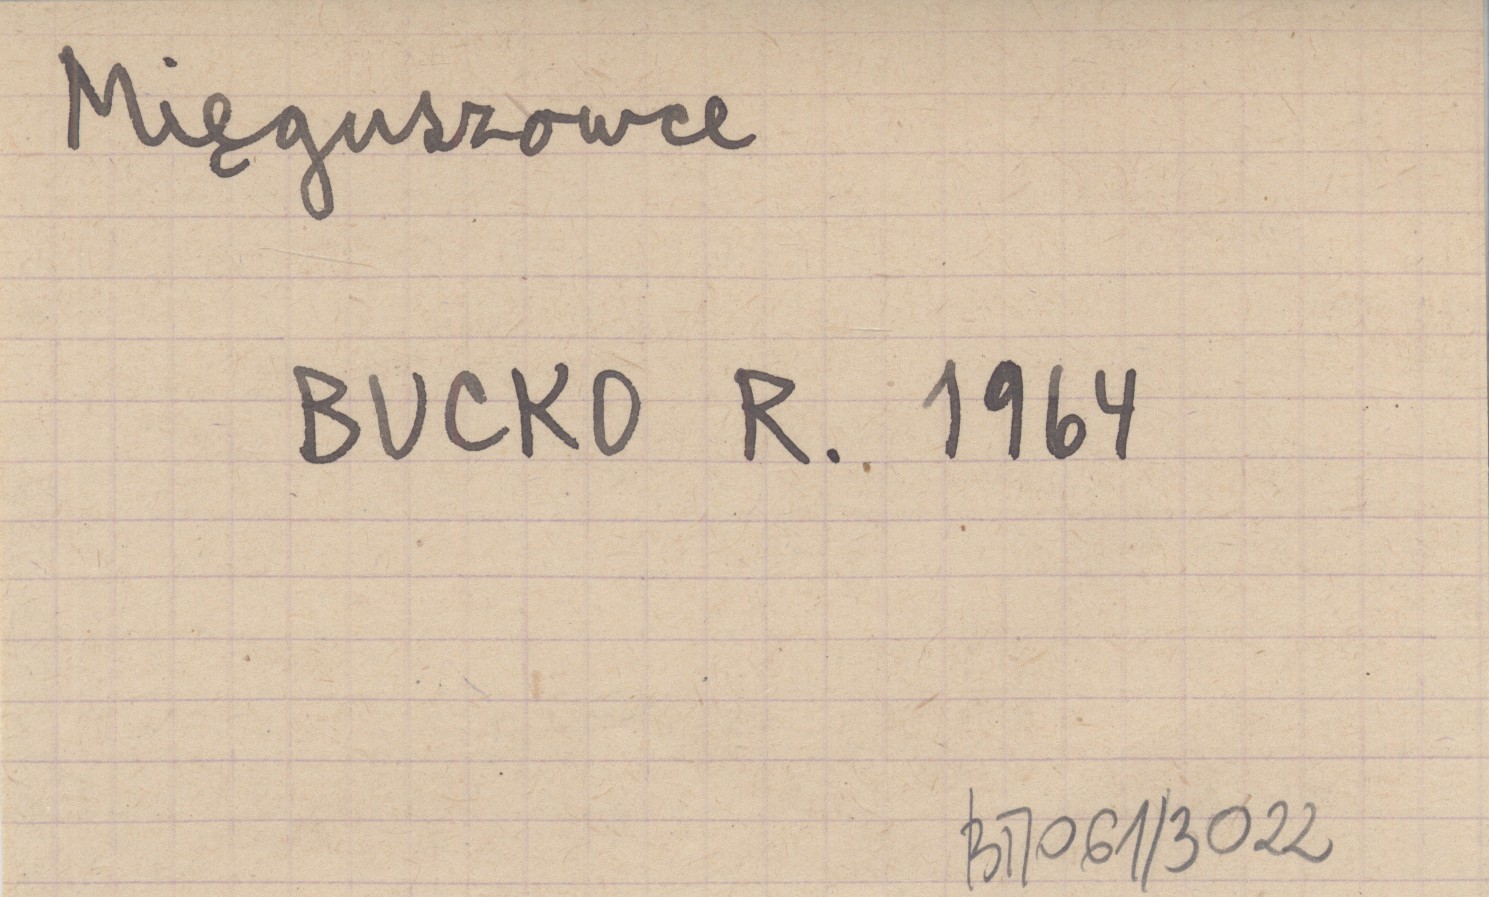 Mięguszowce
BUCKO R. 1964
BП061/3022